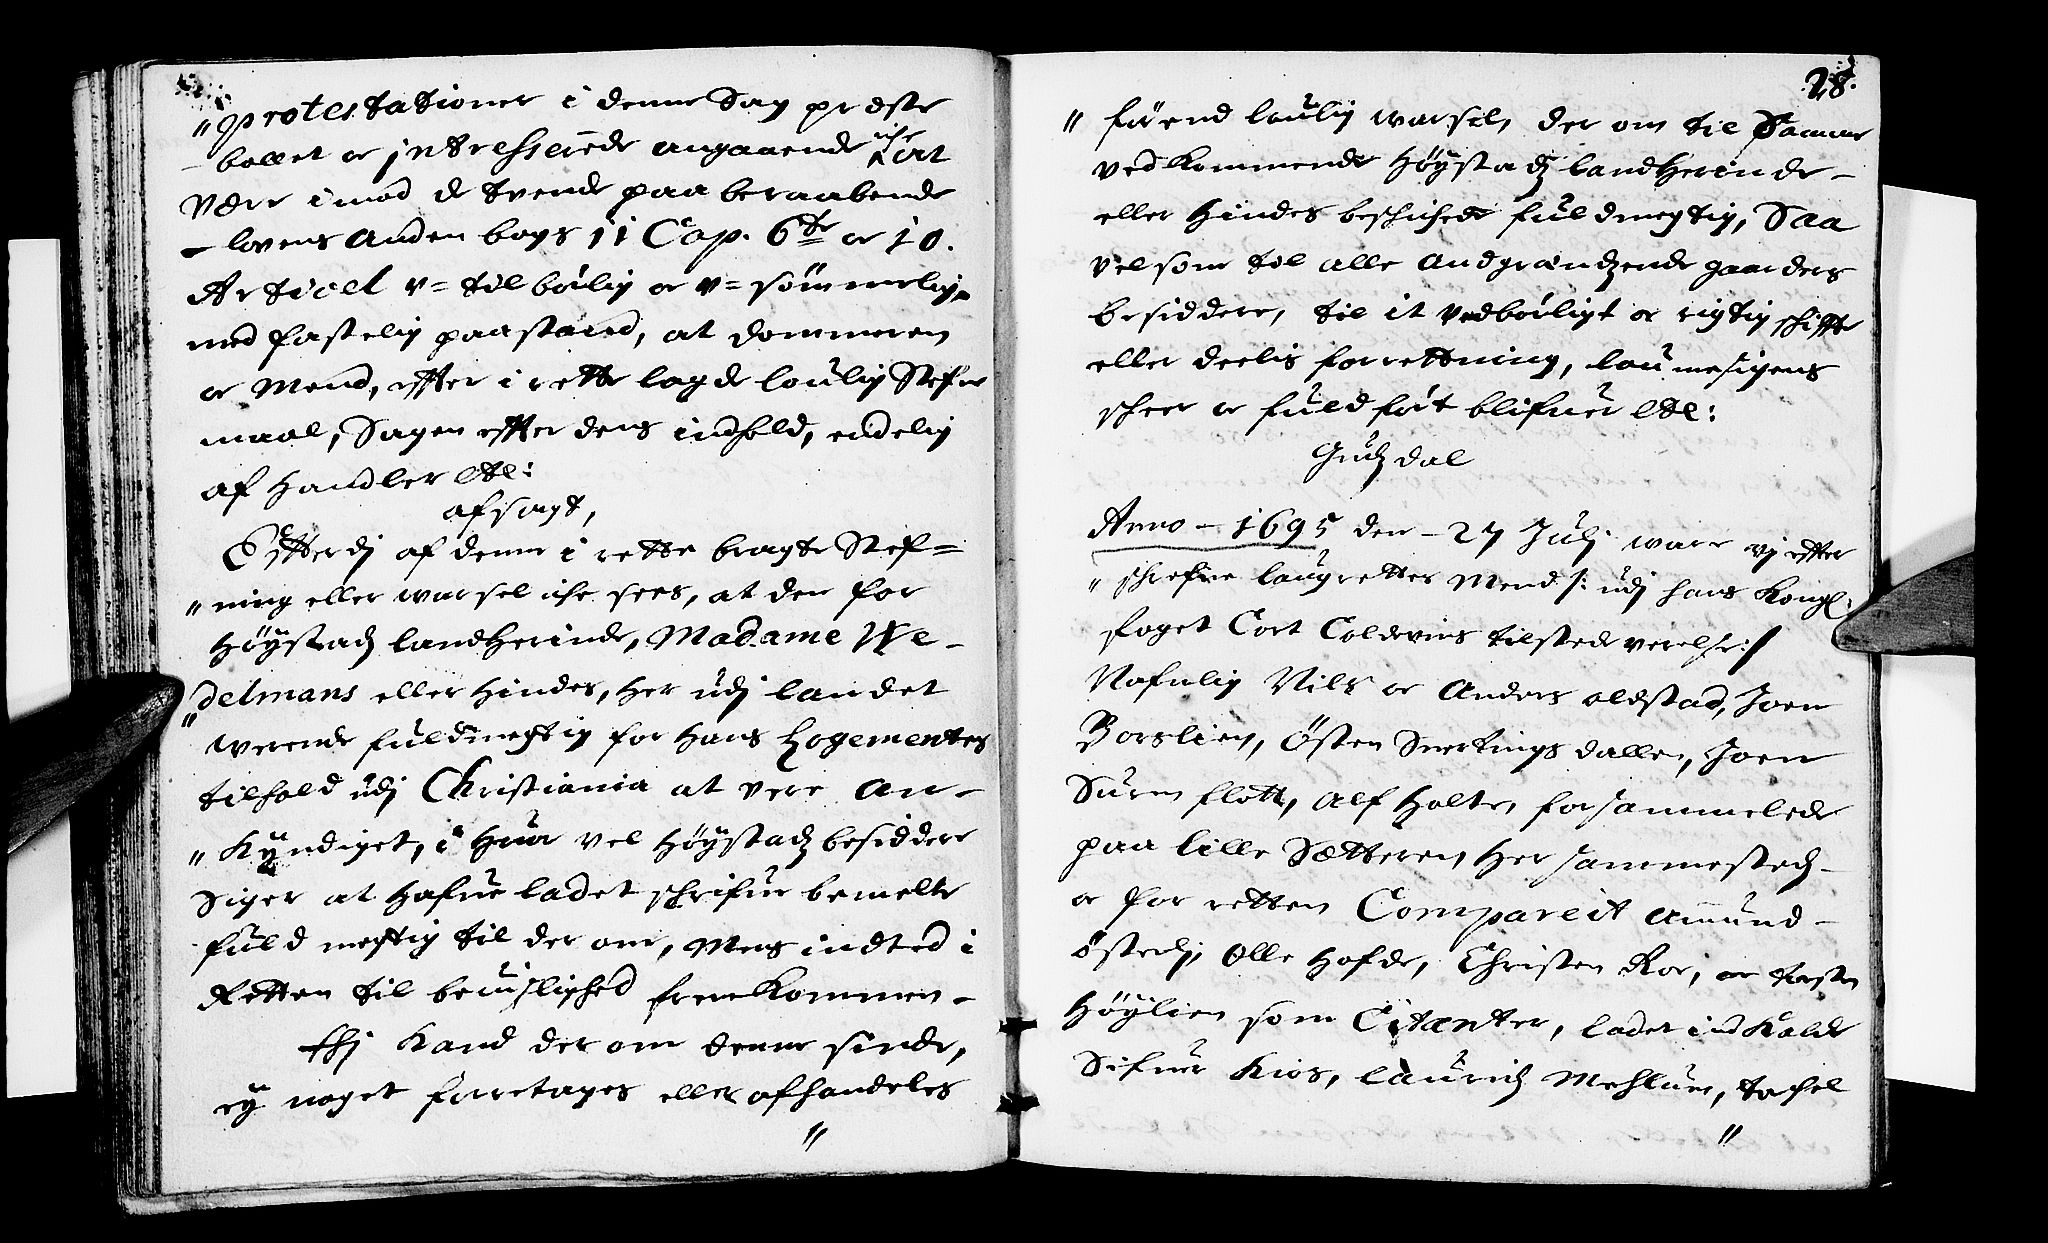 " protestationer i denne Sag præste
- bollet er jntresserede angaaende iche at
være imod de tvende paaberaabende
- lovens Anden bogs 11 Cap. 6te oc 10.
Articel v=tilbörlig oc v=sömmelig,
med fastelig paastand, at dommeren
oc Mend, effter i rette lagde loulig Stefne
maal, Sagen effter dens indhold, endelig
afhandler etc:
afsagt,
Effterdj af denne i rette bragte Stef=
" ning eller warsel iche sees, at den for
Höystædz landherinde, Madame We-
delmans eller hindes, her udj landet
" werende fuldmegtig for hans Logementes
tilhold udj Christiania at vere An-
" kyndiget, i huor vel höystædz besiddere
Siger at hafue ladet schrifue bemelte
fuldmegtig til der om, Mens indted i
Retten til beuislighed fremkommen -
thj kand der om denne sinde,
ey noget foretages eller afhandeles
"
28.
" förend loulig warsel, der om til Samme
vedkommende Höystædz landherinde -
eller hindes beschichede fuldmegtig, Saa
velsom til alle Andgrændzende gaarders
besiddere, til it vedbörligt oc rigtig schiffte
eller deelis forrettning, loumesigens
scheer oc fuldfört blifuer etc:
Gudzdal
Anno - 1695 den - 27 Julj ware vj effter
" schrefne laugrettes Mend /: udj hans Kongl:
foget Cort Coldevins tilstedeverelse :/
Nafnlig Nils oc Anders oldstad, Joen
Borslien, Östen Suertingsdallen, Joen
Suren flott, Alf Holte, forsammelede
paa lille Sætteren, her sammestedz -
oc for retten Compareit Amund -
östedj, Olle Hofde, Christen Roe, oc torsten
Höylien som Citanter, ladet indkalde
Sifuer Kios, Lauridz Mehlum, tachel
"